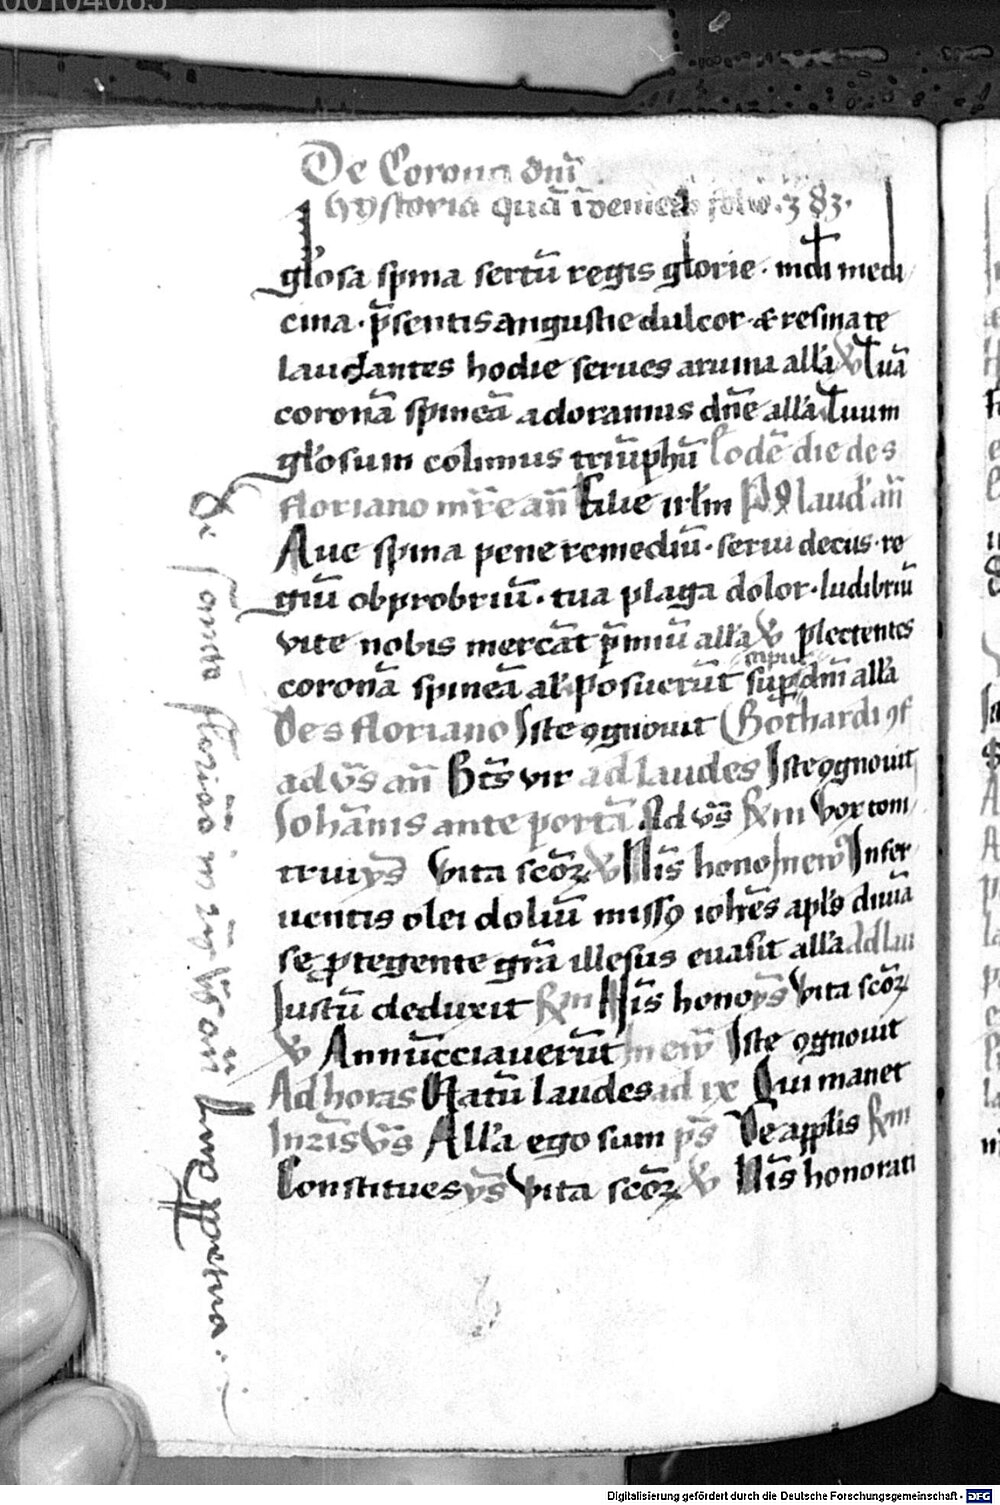 00104085
De Corona dn̄i
hystoria quā īvenies folio .383.
gl'osa spina sertū regis glorie . mūdi medi
cina . p̄sentis angustie dulcor
laudantes hodie serues all'a Tuā
coronā spineā adoramus dn̄e all'a Tuum
gl'osum colimus triūphū Eodē die de s
floriano mr̄e an̄ Filie irl'm Ps laud' an̄
Aue spina pene remediū . serui decus . re
giū obprobriū . tua plaga dolor . ludibriū
vite nobis mercāt p̄miū all'a plectentes
coronā spineā posuerūt caput dn̄i all'a
De s floriano Iste ꝯgnouit Gothardi ꝯf
ad vs̄ an̄ Bt̄s vir ad laudes Iste ꝯgnouit
Iohānis ante portā Ad vs̄ Rm Vox toni
trui ys̄ Vita scōꝝ Nīs hono In ew̄ Infer
uentis olei doliū missꝯ ioh'es apl'o diuīa
se ꝓtegente grā illesus euasit all'a Ad lau
Iustū deduxit Rm Nīs hono ys̄ Vita scōꝝ
Annūcciauerūt In ew̄ Iste ꝯgnouit
Ad horas laudes ad ix Qui manet
In vs̄ All'a ego sum ps̄ De applis Rm
Constitues ys̄ Vita scōꝝ Nīs honorati
De sancto floriano Lux ꝑpetua .
Digitalisierung gefördert durch die Deutsche Forschungsgemeinschaft - DFG